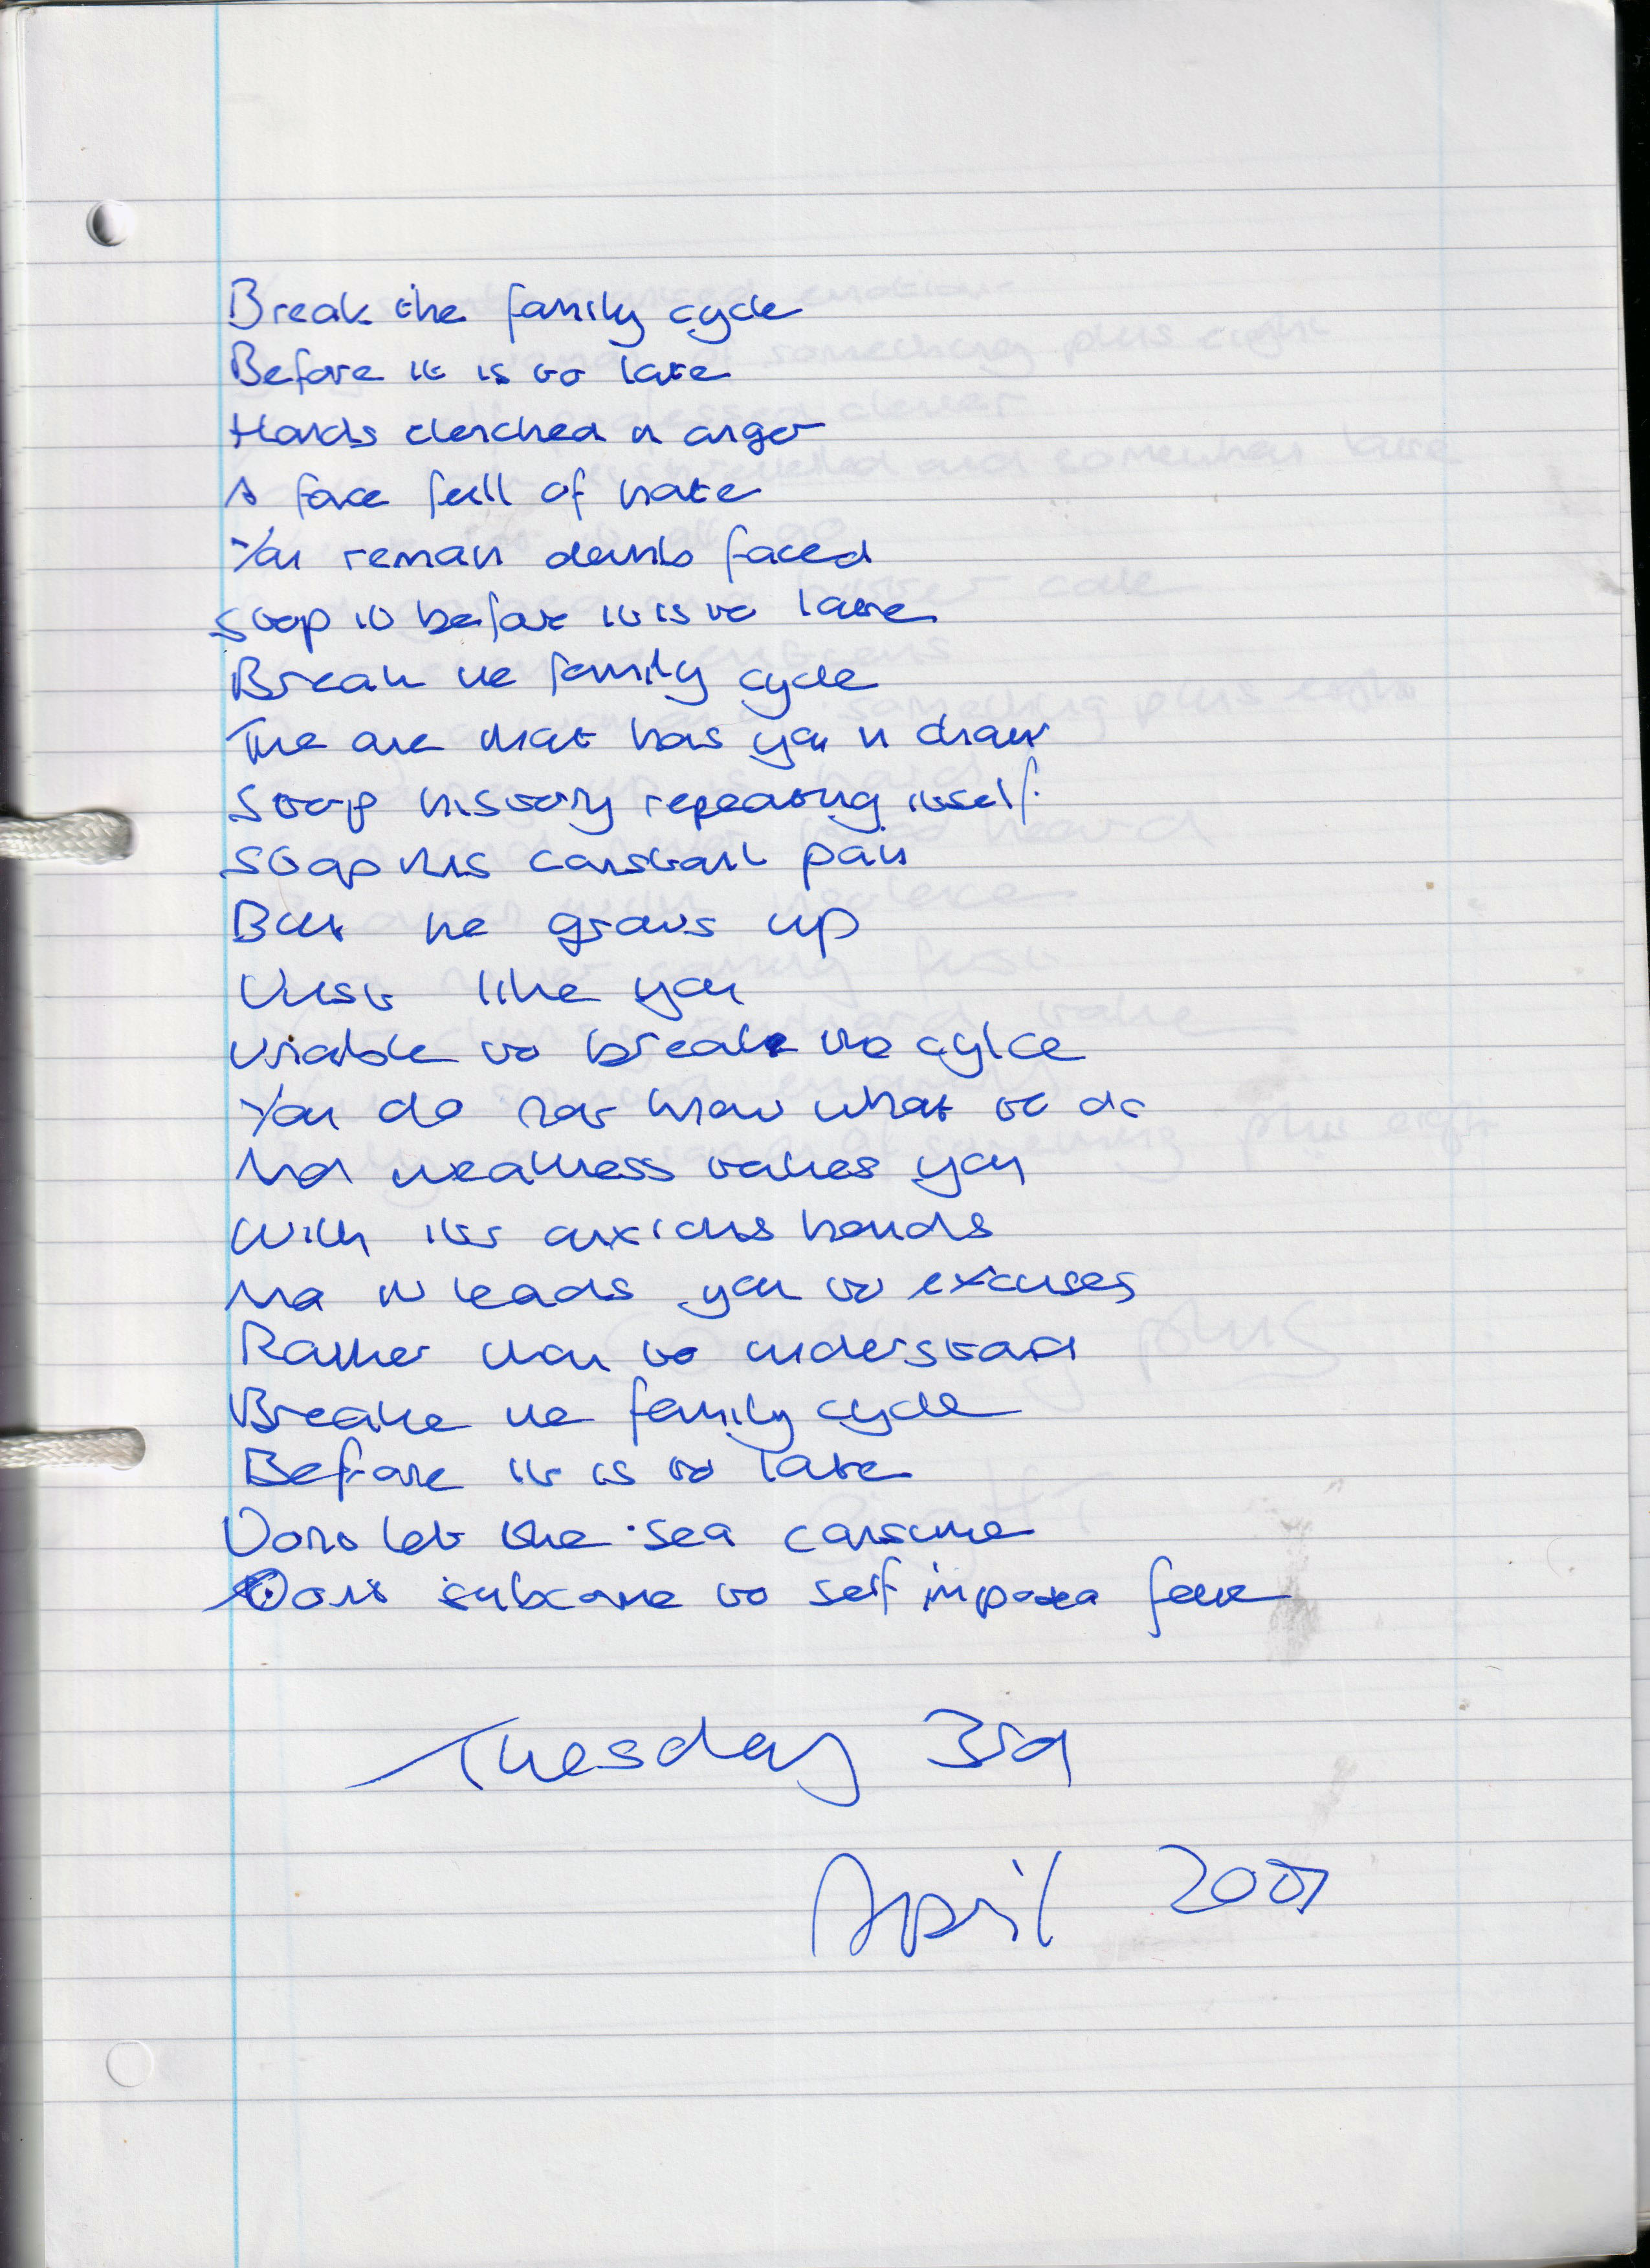 Break the family cycle
Before it is to late
Hands clenched in anger
A face full of hate
You remain dumb faced
Stop it before it is to late
Break the family cycle
The one that has you in
Stop history repeating itself
Stop this constant pain
But he grows up
Just like you
Unable to break the cylce
You do not know what to do
And weakness takes you
With its anxious hands
And it leads you to excuses
Rather than to understand
Breake the family cycle
Before it is to late
Dont let the sea consume
Dont to self imposed fate
Tuesday 3rd
April 2007